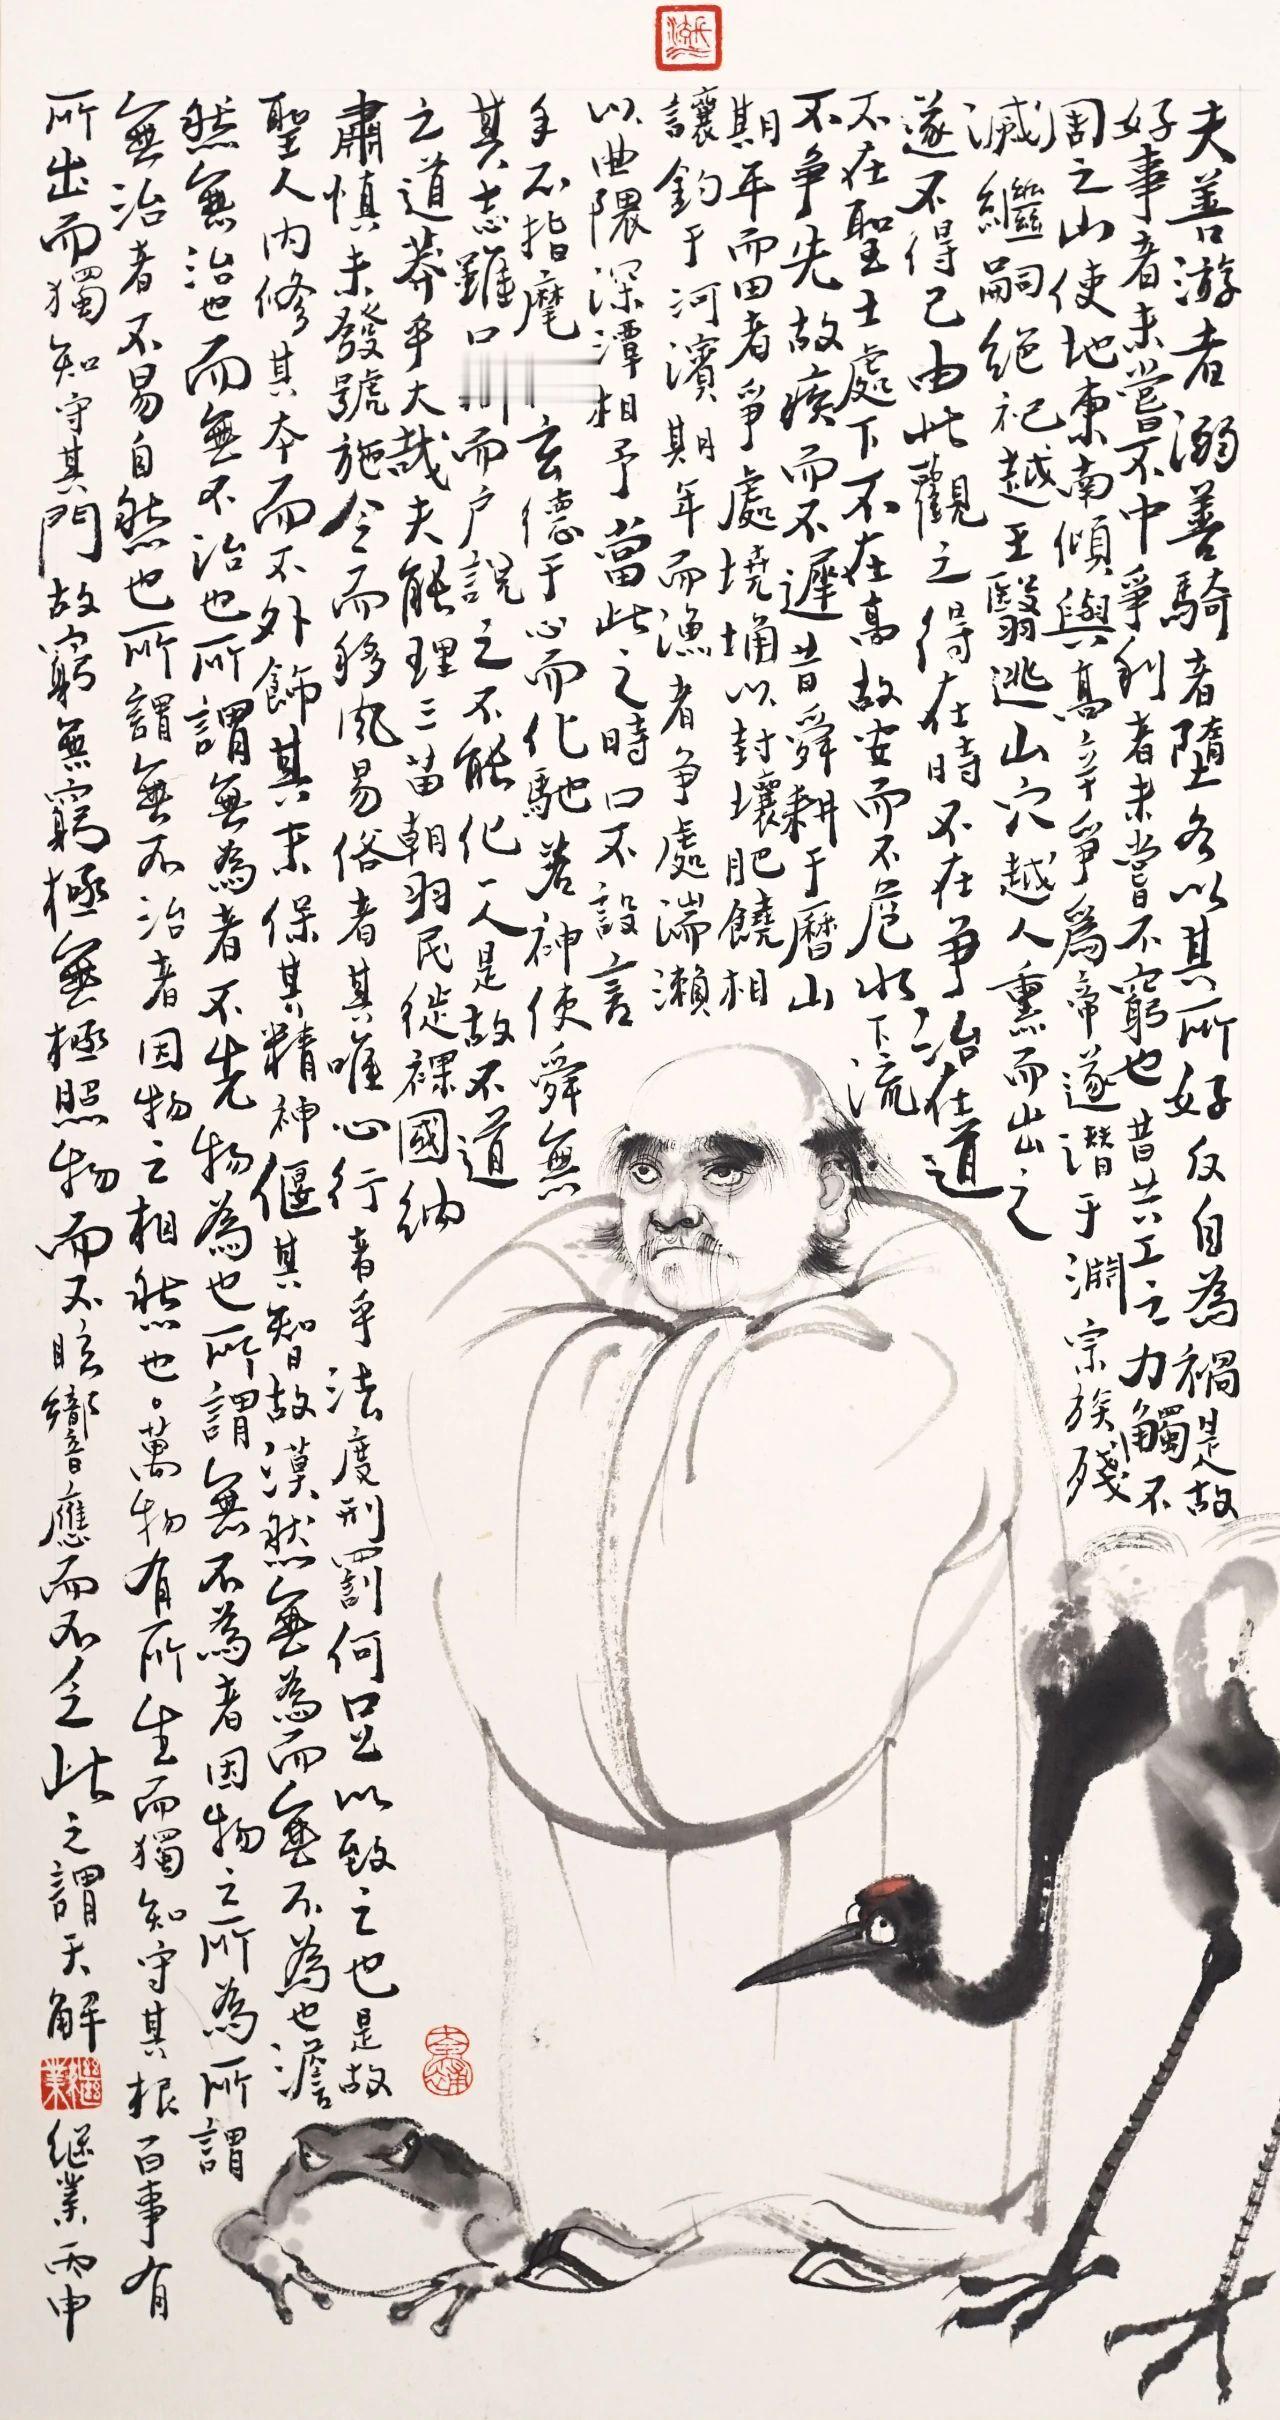 夫善游者溺善騎者墮各以其所好反自為禍是故
好事者未嘗不中爭利者未嘗不窮也昔共工之力觸不
周之山使地東南傾與高辛爭為帝遂潛于淵宗族殘
滅繼嗣絕祀越王翳逃山穴越人熏而出之
遂不得已由此觀之得在時不在爭治在道
不在聖土處下不在高故安而不危水下流
不爭先故疾而不遲昔舜耕于曆山
期年而田者爭處墝埆以封壤肥饒相
讓釣于河濱期年而漁者爭處湍瀨
以曲隈深潭相予當此之時口不設言
手不指麾玄德于心而化馳若神使舜無
其志雖口而戶說之不能化一人是故不道
之道莽乎大哉夫能理三苗朝羽民徙裸國納
肅慎未發號施令而移風易俗者其唯心行者乎法度刑罰何足以致之也是故
聖人內修其本而不外飾其末保其精神偃其智故漠然無為而無不為也澹
然無治也而無不治也所謂無為者不先物為也所謂無不為者因物之所為所謂
無治者不易自然也所謂無不治者因物之相然也。萬物有所生而獨知守其根百事有
所出而獨知守其門故窮無窮極無極照物而不眩響應而不乏此之謂天解
繼業
继業丙申